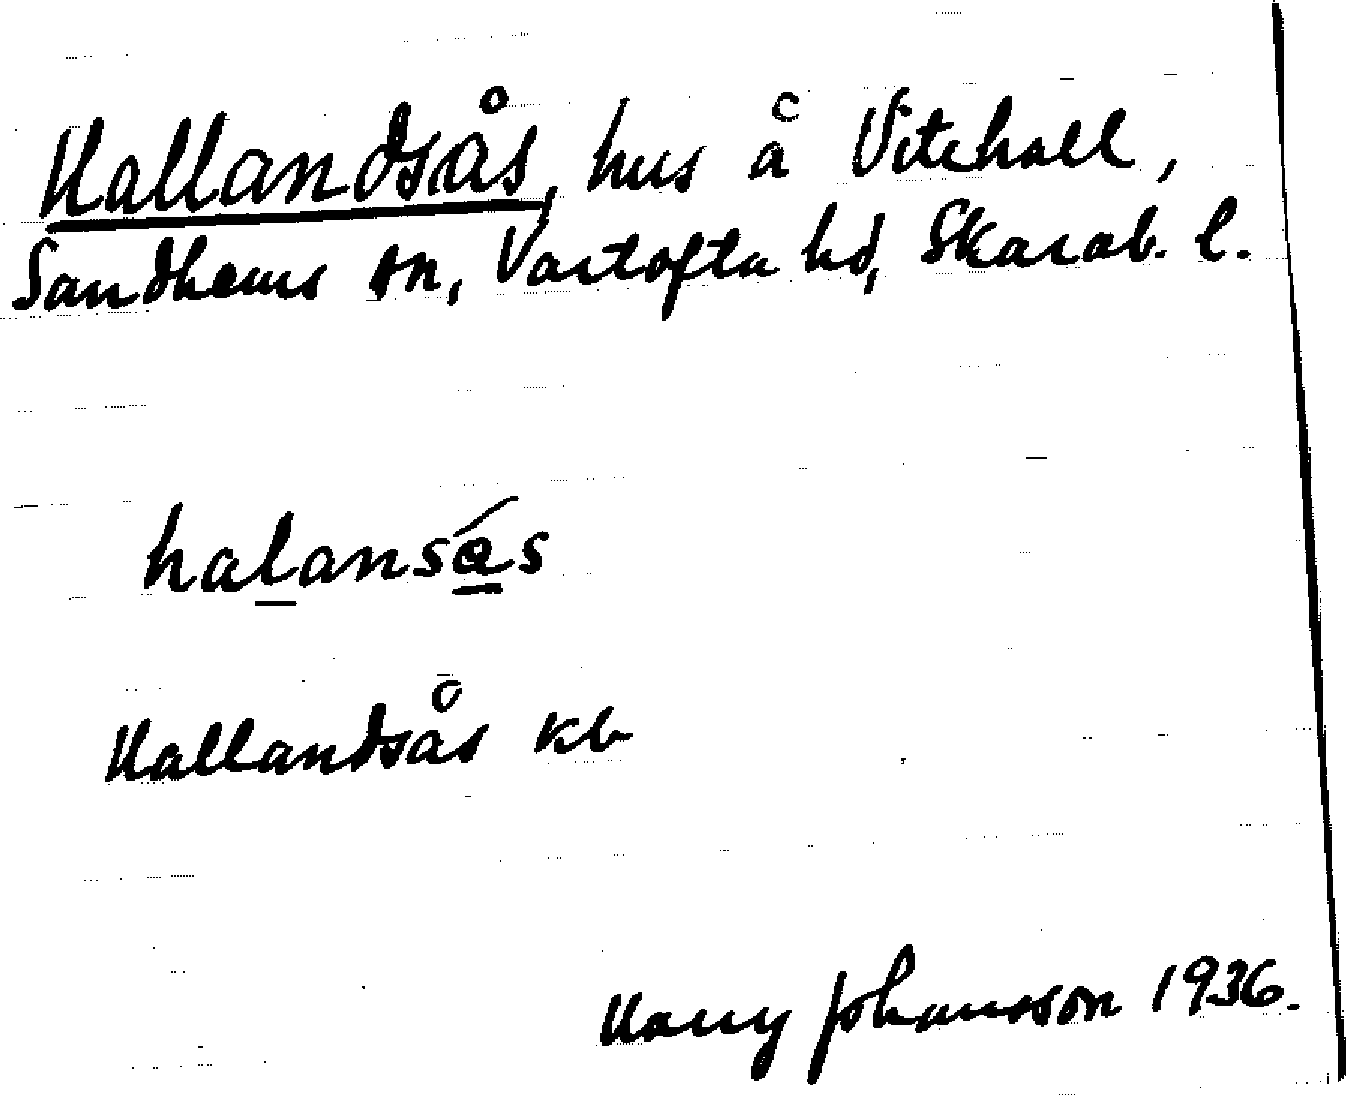 Hallandsås, hus å Vitehall,
Sandhems sn, Vartofta hd, Skarab. l.
halansás
Hallandsås kb
Harry Johansson 1936.